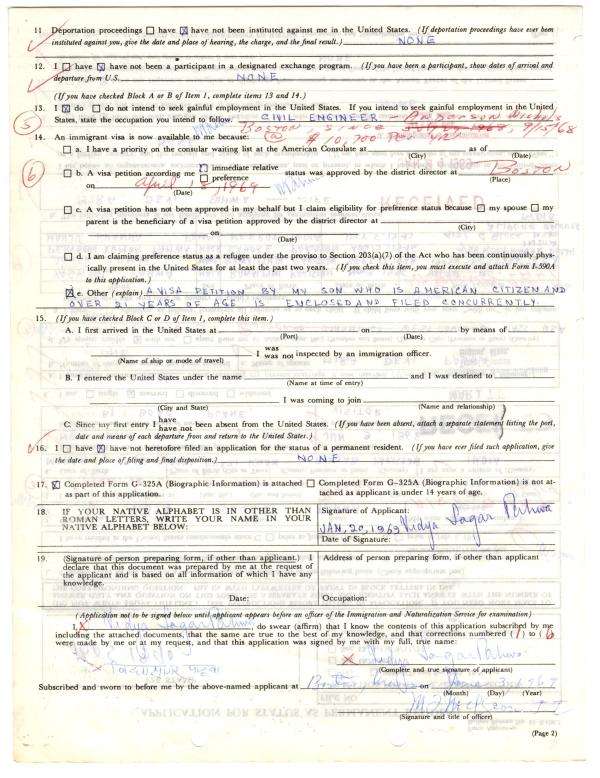 11 Deportation proceedings ☐ have ☒ have not been instituted against me in the United States. (If deportation proceedings have ever been
instituted against you, give the date and place of hearing, the charge, and the final result.) NONE
12. I ☐ have ☒ have not been a participant in a designated exchange program. (If you have been a participant, show dates of arrival and
departure from U.S. NONE
(If you have checked Block A or B of Item 1, complete items 13 and 14.)
13. I ☒ do ☐ do not intend to seek gainful employment in the United States. If you intend to seek gainful employment in the United
States, state the occupation you intend to follow. CIVIL ENGINEER - Anderson Nichols
5 BOSTON SINCE 9/15/68
14. An immigrant visa is now available to me because: @ $10,700 Per
☐ a. I have a priority on the consular waiting list at the American Consulate at as of
(City) (Date)
6 ☐ b. A visa petition according me ☐ immediate relative ☐ preference status was approved by the district director at BOSTON
on April 1969
(Date) (Place)
☐ c. A visa petition has not been approved in my behalf but I claim eligibility for preference status because ☐ my spouse ☐ my
parent is the beneficiary of a visa petition approved by the district director at
(City)
on
(Date)
☐ d. I am claiming preference status as a refugee under the proviso to Section 203(a)(7) of the Act who has been continuously phys-
ically present in the United States for at least the past two years. (If you check this item, you must execute and attach Form I-590A
to this application.)
☒ e. Other (explain) A VISA PETITION BY MY SON WHO IS AMERICAN CITIZEN AND
OVER 21 YEARS OF AGE IS ENCLOSED AND FILED CONCURRENTLY.
15. (If you have checked Block C or D of Item 1, complete this item.)
A. I first arrived in the United States at on by means of
(Port) (Date)
I was was not inspected by an immigration officer.
(Name of ship or mode of travel)
B. I entered the United States under the name and I was destined to
(Name at time of entry)
I was coming to join
(City and State) (Name and relationship)
C. Since my first entry I have have not been absent from the United States. (If you have been absent, attach a separate statement listing the port,
date and means of each departure from and return to the United States.)
16. I ☐ have ☒ have not heretofore filed an application for the status of a permanent resident. (If you have ever filed such application, give
the date and place of filing and final disposition.) NONE
17. ☒ Completed Form G-325A (Biographic Information) is attached ☐ Completed Form G-325A (Biographic Information) is not at-
as part of this application. tached as applicant is under 14 years of age.
18. IF YOUR NATIVE ALPHABET IS IN OTHER THAN
ROMAN LETTERS, WRITE YOUR NAME IN YOUR
NATIVE ALPHABET BELOW:
Signature of Applicant:
JAN, 20, 1969 Vidya Sagar Pahwa
Date of Signature:
19. (Signature of person preparing form, if other than applicant.) I
declare that this document was prepared by me at the request of
the applicant and is based on all information of which I have any
knowledge.
Date:
Address of person preparing form, if other than applicant
Occupation:
(Application not to be signed below until applicant appears before an officer of the Immigration and Naturalization Service for examination)
I, X Vidya Sagar Pahwa, do swear (affirm) that I know the contents of this application subscribed by me
including the attached documents, that the same are true to the best of my knowledge, and that corrections numbered (1) to (6
were made by me or at my request, and that this application was signed by me with my full, true name:
X विद्यासागर पाहवा
X Vidya Sagar Pahwa
(Complete and true signature of applicant)
Subscribed and sworn to before me by the above-named applicant at Boston on
(Month) (Day) (Year)
(Signature and title of officer)
(Page 2)